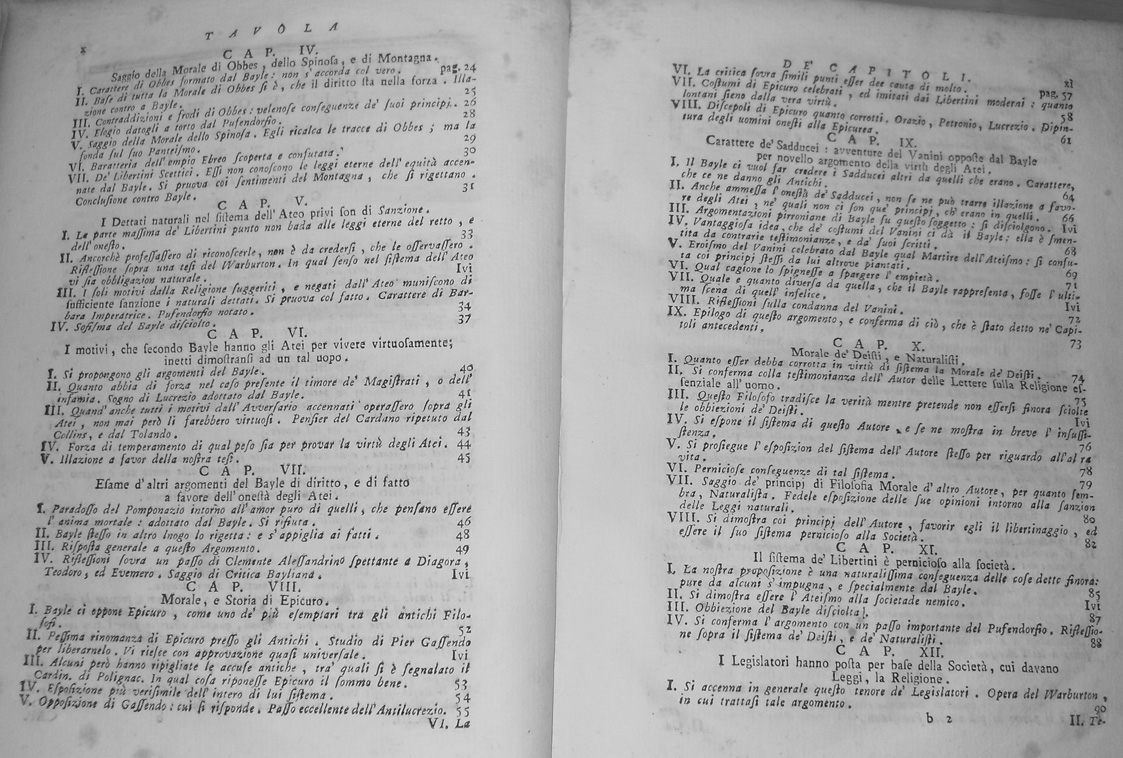 x
TAVOLA
CAP. IV.
Saggio della Morale di Obbes, dello Spinosa, e di Montagna.
I. Carattere di Obbes formato dal Bayle: non s'accorda col vero. pag. 24
II. Base di tutta la Morale di Obbes si è, che il diritto sta nella forza. Illa-
zione contro a Bayle. 25
III. Contraddizioni e frodi di Obbes: velenose conseguenze de' suoi principj. 26
IV. Elogio datogli a torto dal Pufendorfio. 28
V. Saggio della Morale dello Spinosa. Egli ricalca le tracce di Obbes; ma la
fonda sul suo Panteismo. 29
VI. Baratteria dell'empio Ebreo scoperta e confutata. 30
VII. De' Libertini Scettici. Essi non conoscono le leggi eterne dell'equità accen-
nate dal Bayle. Si pruova coi sentimenti del Montagna, che si rigettano.
Conclusione contro Bayle. 31
CAP. V.
I Dettati naturali nel sistema dell'Ateo privi son di Sanzione.
I. La parte massima de' Libertini punto non bada alle leggi eterne del retto, e
dell'onesto. 33
II. Ancorchè professassero di riconoscerle, non è da credersi, che le osservassero.
Riflessione sopra una tesi del Warburton. In qual senso nel sistema dell'Ateo
vi sia obbligazion naturale. Ivi
III. I soli motivi dalla Religione suggeriti, e negati dall'Ateo muniscono di
sufficiente sanzione i naturali dettati. Si pruova col fatto. Carattere di Bar-
bara Imperatrice. Pufendorfio notato. 34
IV. Sofisma del Bayle disciolto. 37
CAP. VI.
I motivi, che secondo Bayle hanno gli Atei per vivere virtuosamente;
inetti dimostransi ad un tal uopo.
I. Si propongono gli argomenti del Bayle. 40
II. Quanto abbia di forza nel caso presente il timore de' Magistrati, o dell'
infamia. Sogno di Lucrezio adottato dal Bayle. 41
III. Quand'anche tutti i motivi dall'Avversario accennati operassero sopra gli
Atei, non mai però li farebbero virtuosi. Pensier del Cardano ripetuto dal
Collins, e dal Tolando. 43
IV. Forza di temperamento di qual peso sia per provar la virtù degli Atei. 44
V. Illazione a favor della nostra tesi. 45
CAP. VII.
Esame d'altri argomenti del Bayle di diritto, e di fatto
a favore dell'onestà degli Atei.
I. Paradosso del Pomponazio intorno all'amor puro di quelli, che pensano essere
l'anima mortale: adottato dal Bayle. Si rifiuta. 46
II. Bayle stesso in altro luogo lo rigetta: e s'appiglia ai fatti. 48
III. Risposta generale a questo Argomento. 49
IV. Riflessioni sovra un passo di Clemente Alessandrino spettante a Diagora,
Teodoro, ed Evemero. Saggio di Critica Bayliana. Ivi
CAP. VIII.
Morale, e Storia di Epicuro.
I. Bayle ci oppone Epicuro, come uno de' più esemplari tra gli antichi Filo-
sofi. 52
II. Pessima rinomanza di Epicuro presso gli Antichi. Studio di Pier Gassendo
per liberarnelo. Vi riesce con approvazione quasi universale. Ivi
III. Alcuni però hanno ripigliate le accuse antiche, tra' quali si è segnalato il
Cardin. di Polignac. In qual cosa riponesse Epicuro il sommo bene. 53
IV. Esposizione più verisimile dell'intero di lui sistema. 54
V. Opposizione di Gassendo: cui si risponde. Passo eccellente dell'Antilucrezio. 55
VI. La
DE' CAPITOLI.
xi
VI. La critica sovra simili punti esser dee cauta di molto. pag. 57
VII. Costumi di Epicuro celebrati, ed imitati dai Libertini moderni: quanto
lontani sieno dalla vera virtù. 58
VIII. Discepoli di Epicuro quanto corrotti. Orazio, Petronio, Lucrezio. Dipin-
tura degli uomini onesti alla Epicurea. 61
CAP. IX.
Carattere de' Sadducei: avventure del Vanini opposte dal Bayle
per novello argomento della virtù degli Atei.
I. Il Bayle ci vuol far credere i Sadducei altri da quelli che erano. Carattere,
che ce ne danno gli Antichi. 64
II. Anche ammessa l'onestà de' Sadducei, non se ne può trarre illazione a favo-
re degli Atei, ne' quali non ci son que' principj, ch'erano in quelli. 66
III. Argomentazioni pirroniane di Bayle su questo soggetto: si disciolgono. Ivi
IV. Vantaggiosa idea, che de' costumi del Vanini ci dà il Bayle: ella è smen-
tita da contrarie testimonianze, e da' suoi scritti. 68
V. Eroismo del Vanini celebrato dal Bayle qual Martire dell'Ateismo: si confu-
ta coi principj stessi da lui altrove piantati. 69
VI. Qual cagione lo spignesse a spargere l'empietà. 71
VII. Quale e quanto diversa da quella, che il Bayle rappresenta, fosse l'ulti-
ma scena di quell'infelice. Ivi
VIII. Riflessioni sulla condanna del Vanini. 72
IX. Epilogo di questo argomento, e conferma di ciò, che è stato detto ne' Capi-
toli antecedenti. 73
CAP. X.
Morale de' Deisti, e Naturalisti.
I. Quanto esser debba corrotta in virtù di sistema la Morale de' Deisti. 74
II. Si conferma colla testimonianza dell'Autor delle Lettere sulla Religione es-
senziale all'uomo. 75
III. Questo Filosofo tradisce la verità mentre pretende non essersi finora sciolte
le obbiezioni de' Deisti.
IV. Si espone il sistema di questo Autore, e se ne mostra in breve l'insussi-
stenza. 76
V. Si prosiegue l'esposizion del sistema dell'Autore stesso per riguardo all'altra
vita. 78
VI. Perniciose conseguenze di tal sistema. 79
VII. Saggio de' principj di Filosofia Morale d'altro Autore, per quanto sem-
bra, Naturalista. Fedele esposizione delle sue opinioni intorno alla sanzion
delle Leggi naturali. 80
VIII. Si dimostra coi principj dell'Autore, favorir egli il libertinaggio, ed
essere il suo sistema pernicioso alla Società. 82
CAP. XI.
Il sistema de' Libertini è pernicioso alla società.
I. La nostra proposizione è una naturalissima conseguenza delle cose dette finora:
pure da alcuni s'impugna, e spezialmente dal Bayle. 85
II. Si dimostra essere l'Ateismo alla societade nemico. Ivi
III. Obbiezione del Bayle disciolta. 87
IV. Si conferma l'argomento con un passo importante del Pufendorfio. Riflessio-
ne sopra il sistema de' Deisti, e de' Naturalisti. 88
CAP. XII.
I Legislatori hanno posta per base della Società, cui davano
Leggi, la Religione.
I. Si accenna in generale questo tenore de' Legislatori. Opera del Warburton,
in cui trattasi tale argomento. 90
b 2
II. Te-